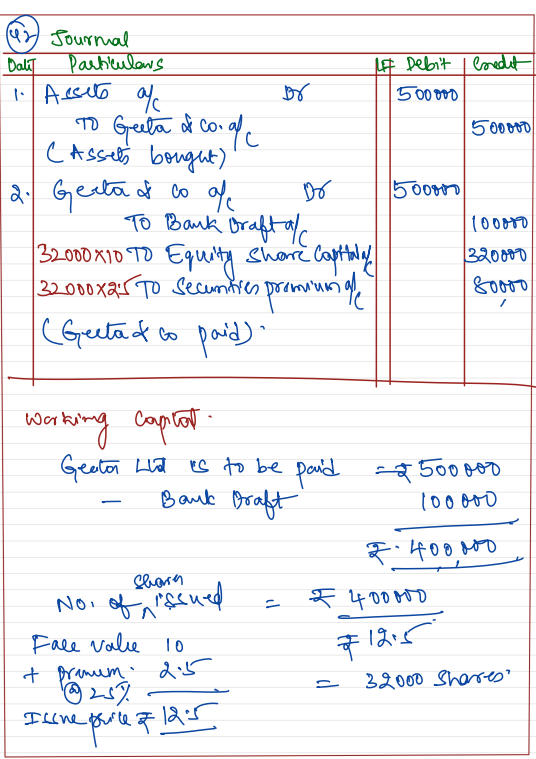 42 Journal
Date Particulars LF Debit Credit
1. Assets a/c Dr 500000
TO Geeta & Co. a/c 500000
(Assets bought)
2. Geeta & Co a/c Dr 500000
To Bank Draft a/c 100000
32000×10 TO Equity Share Capital a/c 320000
32000×2.5 TO Securities premium a/c 80000
(Geeta & Co paid).
Working Capital.
Geeta Ltd is to be paid = ₹ 500000
– Bank Draft 100000
₹. 400,000
No. of shares issued = ₹ 400000
Face value 10 ₹ 12.5
+ premium. 2.5 = 32000 Shares.
@ 25%
Issue price ₹ 12.5